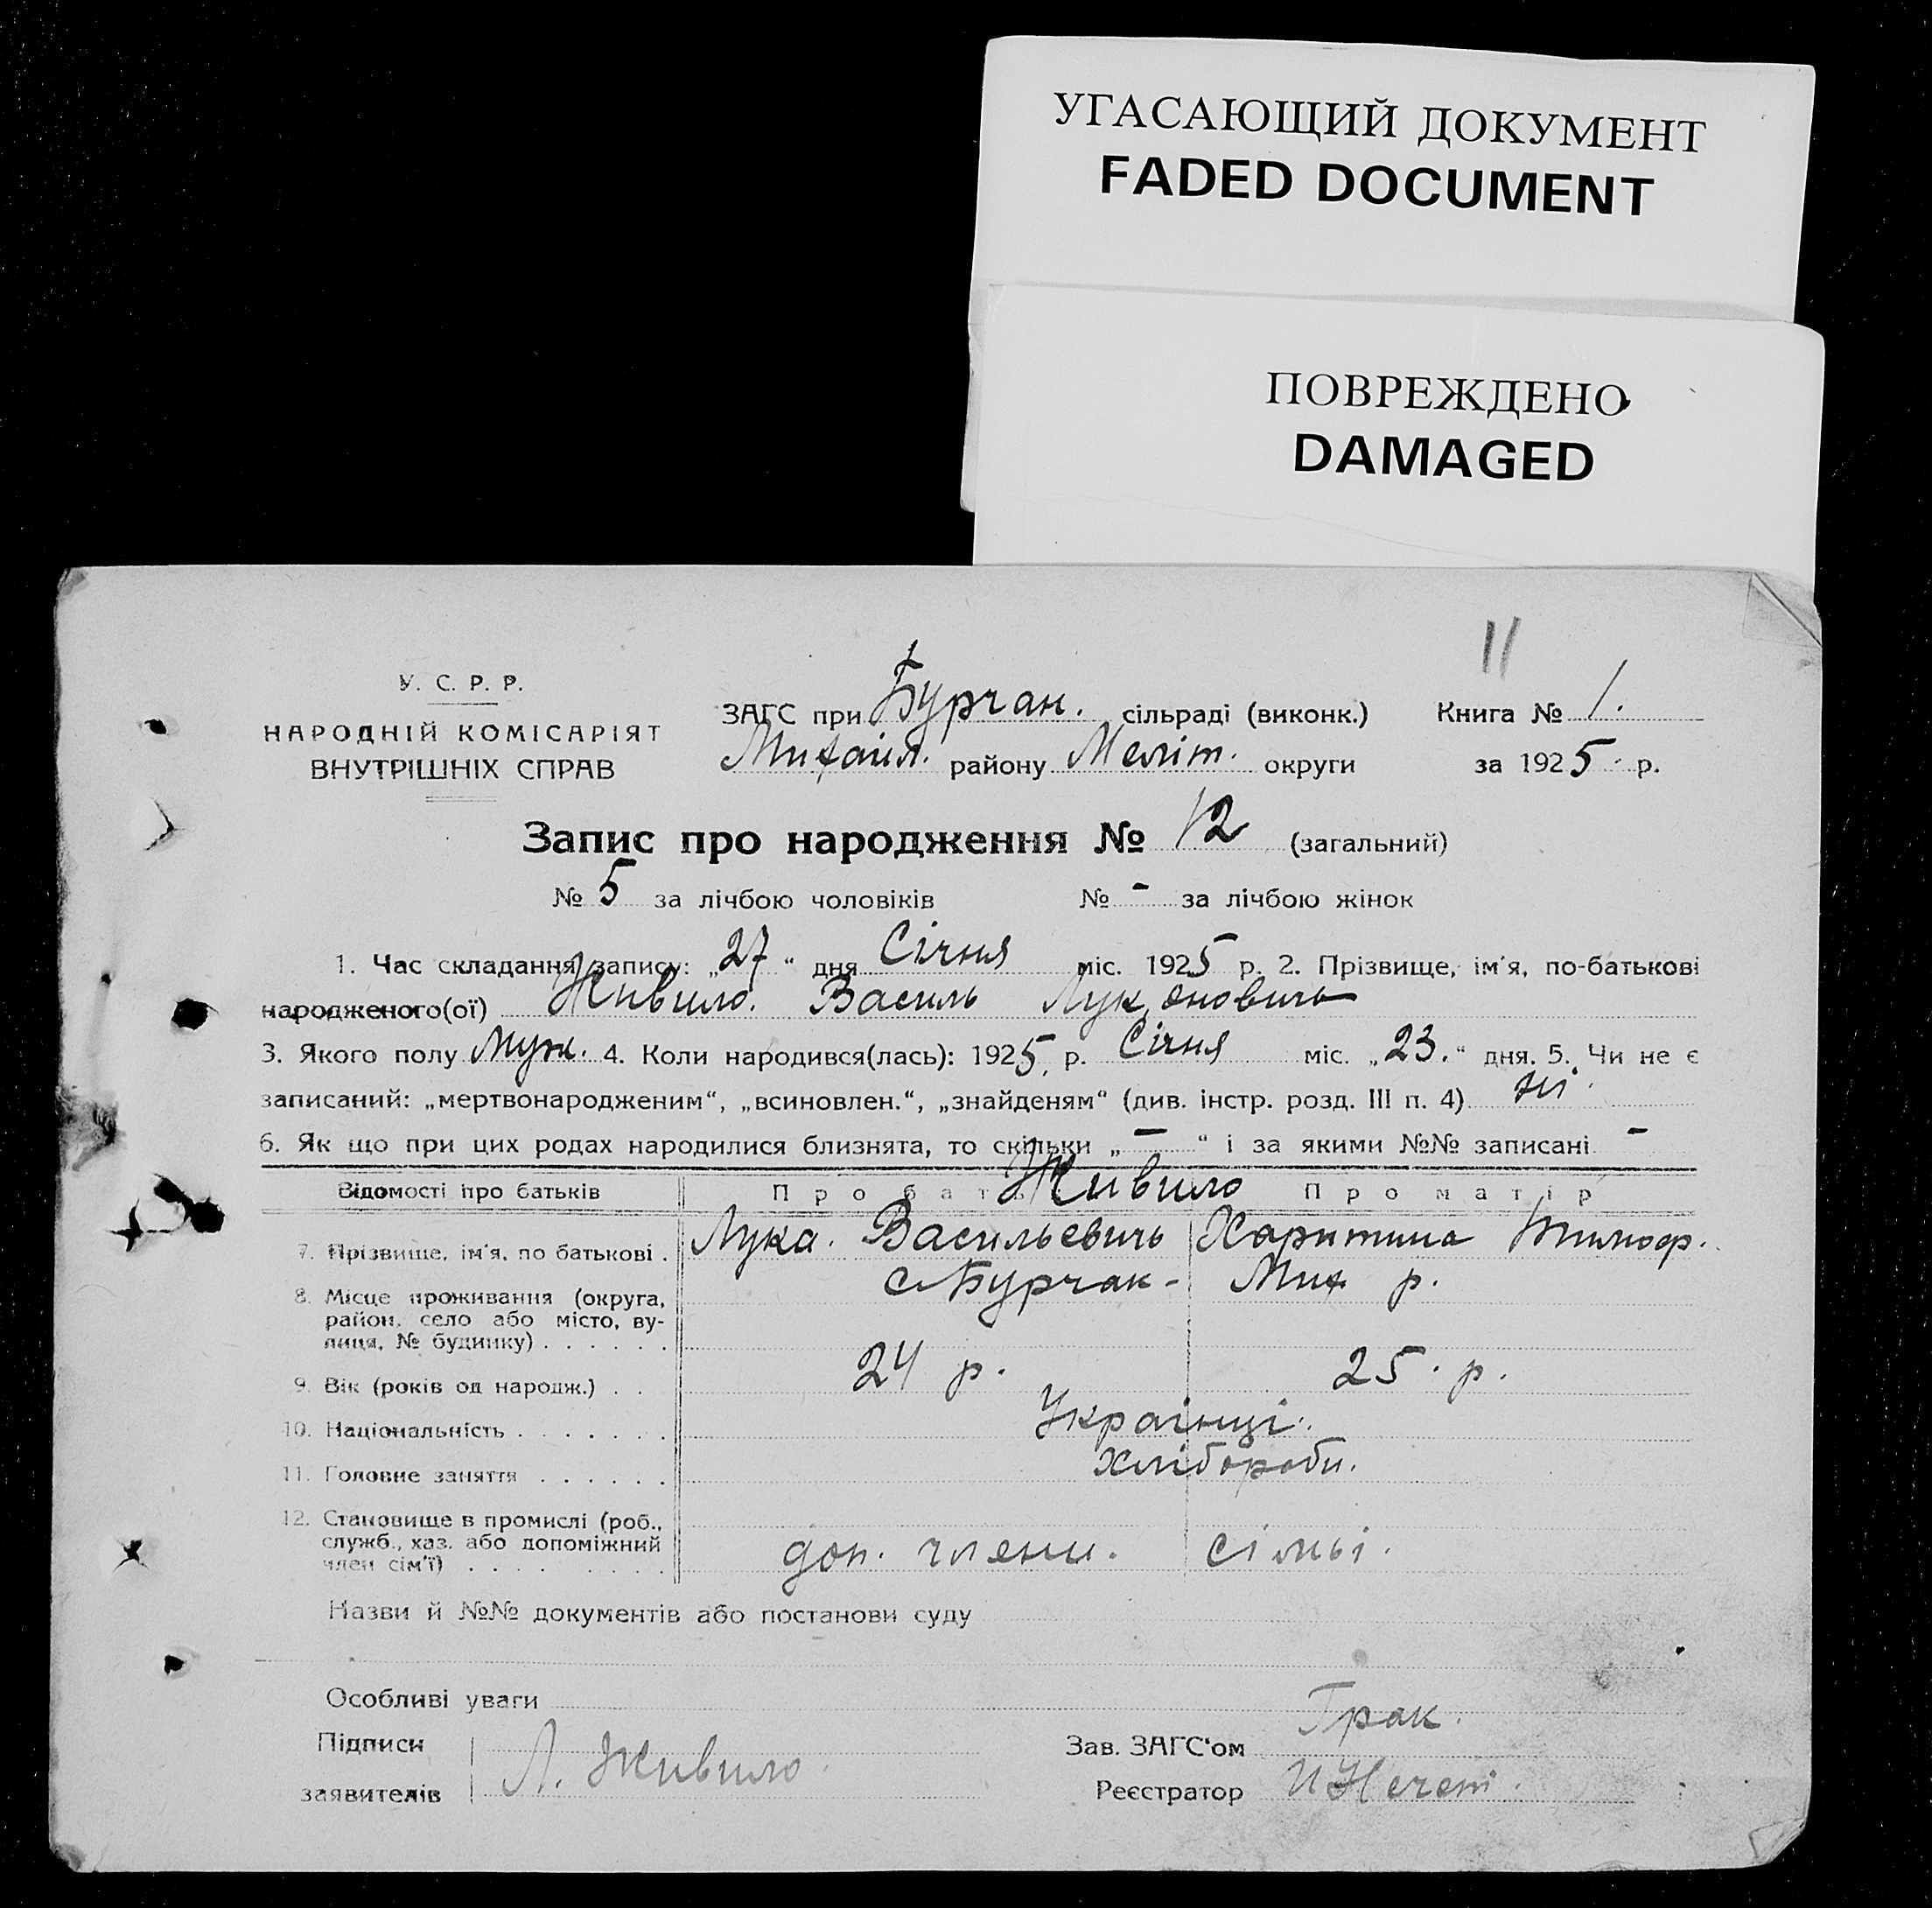 УГАСАЮЩИЙ ДОКУМЕНТ
FADED DOCUMENT
ПОВРЕЖДЕНО
DAMAGED
11
У. С. Р. Р.
НАРОДНІЙ КОМІСАРІЯТ
ВНУТРІШНІХ СПРАВ
ЗАГС при Бурчан. сільраді (виконк.) Книга № 1.
Михайл. району Меліт. округи за 1925 р.
Запис про народження № 12 (загальний)
№ 5 за лічбою чоловіків № - за лічбою жінок
1. Час складання запису: „27“ дня Січня міс. 1925 р. 2. Прізвище, ім'я, по-батькові
народженого(ої) Живило. Василь Лук'яновичь
3. Якого полу Муж. 4. Коли народився(лась): 1925, р. Січня міс. „23.“ дня. 5. Чи не є
записаний: „мертвонародженим“, „всиновлен.“, „знайденям“ (див. інстр. розд. III п. 4) ні.
6. Як що при цих родах народилися близнята, то скільки „-“ і за якими №№ записані -
Відомості про батьків Про бать Живило Про матір
7. Прізвище, ім'я, по батькові . Лука. Васильевичь Харитина Тимоф.
8. Місце проживання (округа, с Бурчак - Мих р.
район, село або місто, ву-
лиця, № будинку) . . . . . .
9. Вік (років од народж.) . . 24 р. 25. р.
10. Національність . . . . . . . Українці.
11. Головне заняття . . . . . . Хлібороби.
12. Становище в промислі (роб.,
служб., хаз. або допоміжний доп. члени. сімьі.
член сім'ї) . . . . . . . .
Назви й №№ документів або постанови суду
Особливі уваги
Підписи
заявителів Л. Живило.
Зав. ЗАГС'ом Грак.
Реєстратор